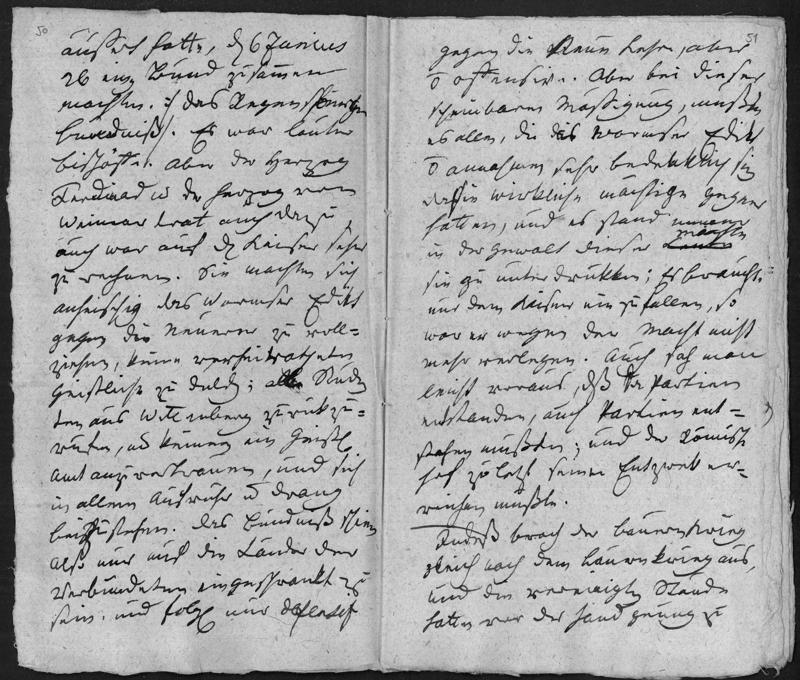 50
äussert hatte, d 6 Junius
26 ein Bund zusammen
machten. :/ das Regenspurger
bündniß/: Es war lauter
bischöfl. aber der Herzog
Ferdinad u der Herzog von
Weimar trat auch dazu
auch war auf d Kaiser sehr
zu rechnen. Sie machten sich
anheischig das Wormser Edikt
gegen die Neuerer zu voll=
ziehen, keine verheirathete
Geistliche zu duld; alle Stud
ten aus Wittenberg zurükzu=
rufen, u keinem ein Geistl
Amt anzuvertrauen, und sich
in allem Aufruhr u drang
beizustehen. das Bündniß schien
also nur auf die Länder der
Verbündeten eingeschränkt zu
sein. und folgl nur defensif
51
gegen die Neue Lehre, aber
offensiv. Aber bei dieser
scheinbaren Mässigung, mußte
es allen, die das Wormser Edikt
annahmen sehr bedenklich sein
daß sie wirkliche mächtige gegner
hatten, und es stand immer
in der Gewalt dieser mächte
sie zu unterdrükken; Es brauchte
nur dem Kaiser einzufallen, so
war er wegen der Macht nicht
mehr verlegen. Auch sah man
leicht voraus, daß da Partien
entstanden, auch Partien ent=
stehen mußten; und der Römisch
hof zuletzt seinen Endzwek er=
reichen mußte.
Indeß brach der bauernkrieg
gleich nach dem bauernkrieg aus,
und die vereinigten Stände
hatten vor der Hand genug zu